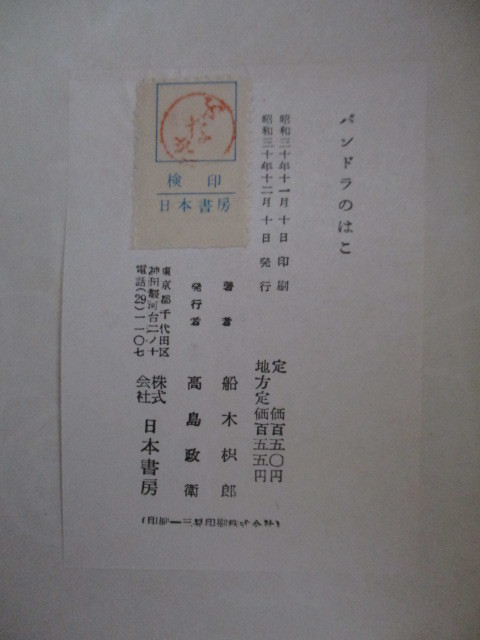 パンドラのはこ
昭和三十年十一月十日 印刷
昭和三十年十二月十日 発行
定価百五〇円
地方定価百五五円
著者 船木枳郎
発行者 高島政衛
東京都千代田区
神田駿河台二ノ十
電話(29)一一〇七
株式会社 日本書房
検印
日本書房